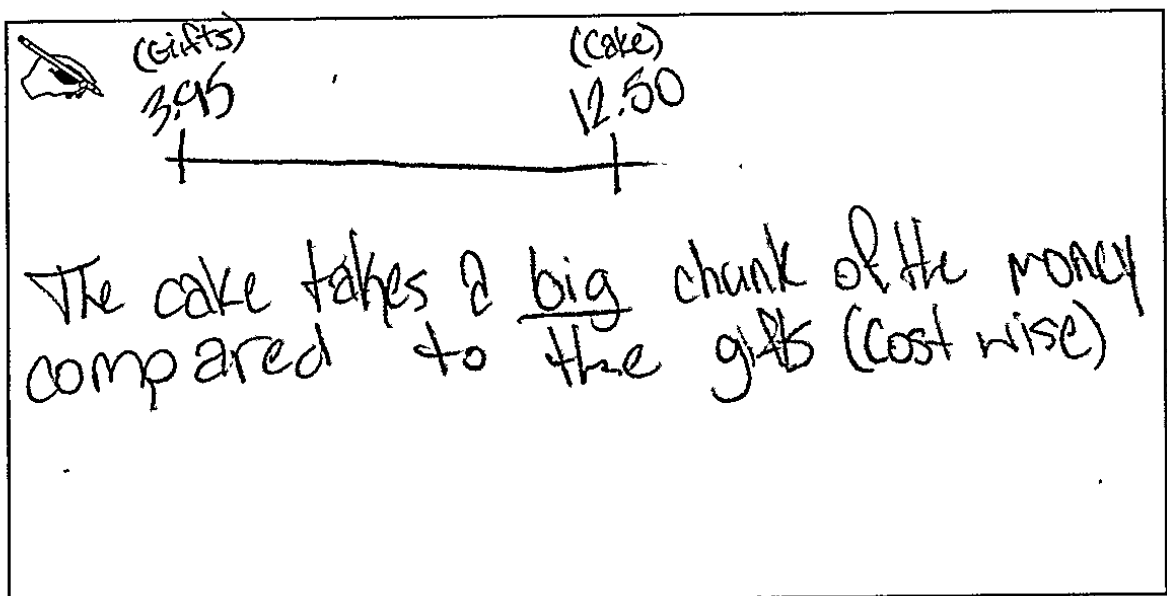 (Gifts) (Cake)
3.95 12.50
The cake takes a big chunk of the money
compared to the gifts (cost wise)